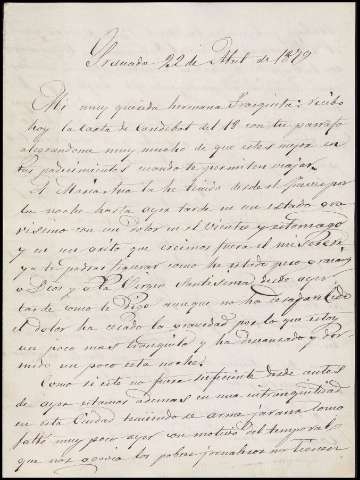 Granada 22 de Abril de 1879
Mi muy querida hermana Frasquita: recibo
hoy la carta de Candebat del 18 con tu parrafo
alegrandome muy mucho de que estes mejor en
tus padecimientos cuando te permiten viajar.
A Maria Ana la he tenido desde el jueves por
la noche hasta ayer tarde en un estado gra
visimo con un dolor en el vientre y estomago
y en un grito que creimos fuera el miserere
ya te podras figurar como he estado pero gracias
a Dios y a la Virgen Santisima desde ayer
tarde como te digo aunque no ha desaparecido
el dolor ha cesado la gravedad por lo que estoy
un poco mas tranquilo y ha descansado y dor
mido un poco esta noche.
Como si esto no fuera suficiente desde antes
de ayer estamos demas en una intranquilidad
en esta Ciudad temiendo se arme jarana como
faltó muy poco ayer con motivo del temporal
que nos los pobres jornaleros no tienen